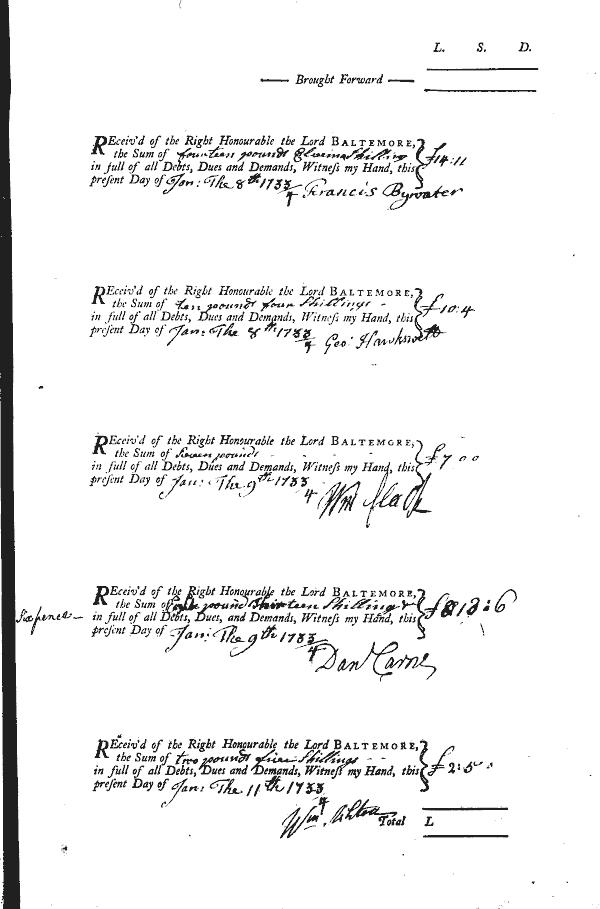 L. S. D.
Brought Forward
REceiv'd of the Right Honourable the Lord BALTEMORE,
the Sum of fourteen pounds Eleven Shilling £14:11
in full of all Debts, Dues and Demands, Witneſs my Hand, this
preſent Day of Jan: The 8th 1733/4 Francis Bywater
REceiv'd of the Right Honourable the Lord BALTEMORE,
the Sum of ten pounds four Shillings - £10:4
in full of all Debts, Dues and Demands, Witneſs my Hand, this
preſent Day of Jan: The 8th 1733/4 Geo: Hawksworth
REceiv'd of the Right Honourable the Lord BALTEMORE,
the Sum of Seven pounds - - - £7 00
in full of all Debts, Dues and Demands, Witneſs my Hand, this
preſent Day of Jan: The 9th 1733/4 Wm
REceiv'd of the Right Honourable the Lord BALTEMORE,
the Sum of pound thirteen Shillings & £8 13:6
Sixpence – in full of all Debts, Dues, and Demands, Witneſs my Hand, this
preſent Day of Jan: The 9th 1733/4
Danl Carne
REceiv'd of the Right Honourable the Lord BALTEMORE,
the Sum of two pounds five Shillings - - £2:5 0
in full of all Debts, Dues and Demands, Witneſs my Hand, this
preſent Day of Jan: The 11th 1733/4
Wm. Ashton Total L